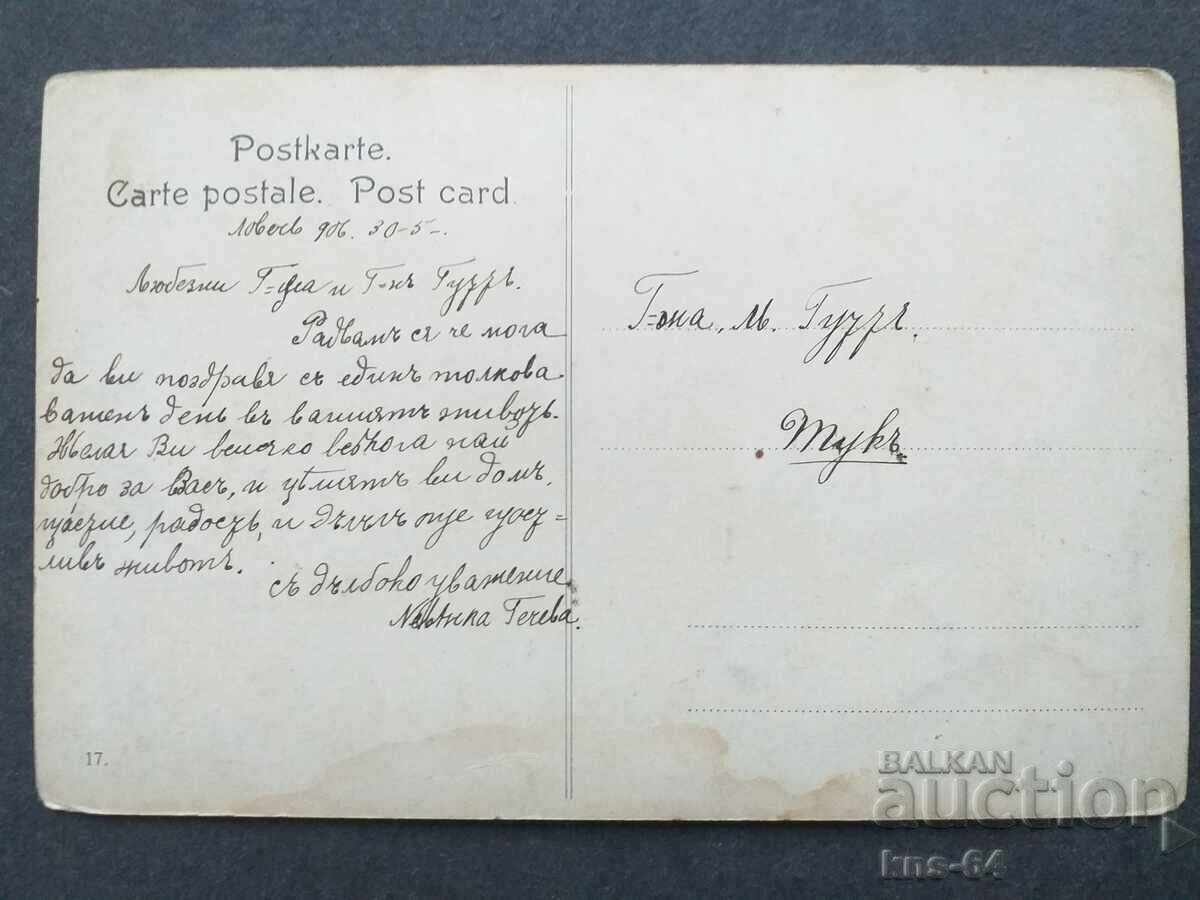 Postkarte.
Carte postale. Post card.
Ловечъ 906. 30-5-.
Любезни Г-жа и Г-нъ
Радвамъ ся че мога
да ви поздравя съ единъ толкова
важенъ день въ вашиятъ животъ.
Желая Ви всичко най
добро за Васъ, и цѣлиятъ ви домъ,
щастие, радость, и още щаст=
ливъ животъ.
съ дълбоко уважение
Гечева.
17.
Г-жа, М.
Тукъ
BALKAN
auction
kns-64